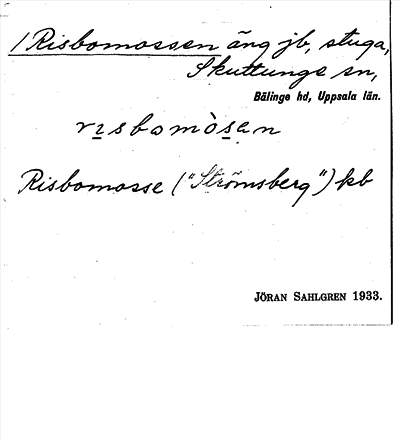 /Risbomossen äng jb, stuga,
Skuttunge sn,
Bälinge hd, Uppsala län.
rısbomòsen
Risbomosse ("Strömsberg") kb
JÖRAN SAHLGREN 1933.